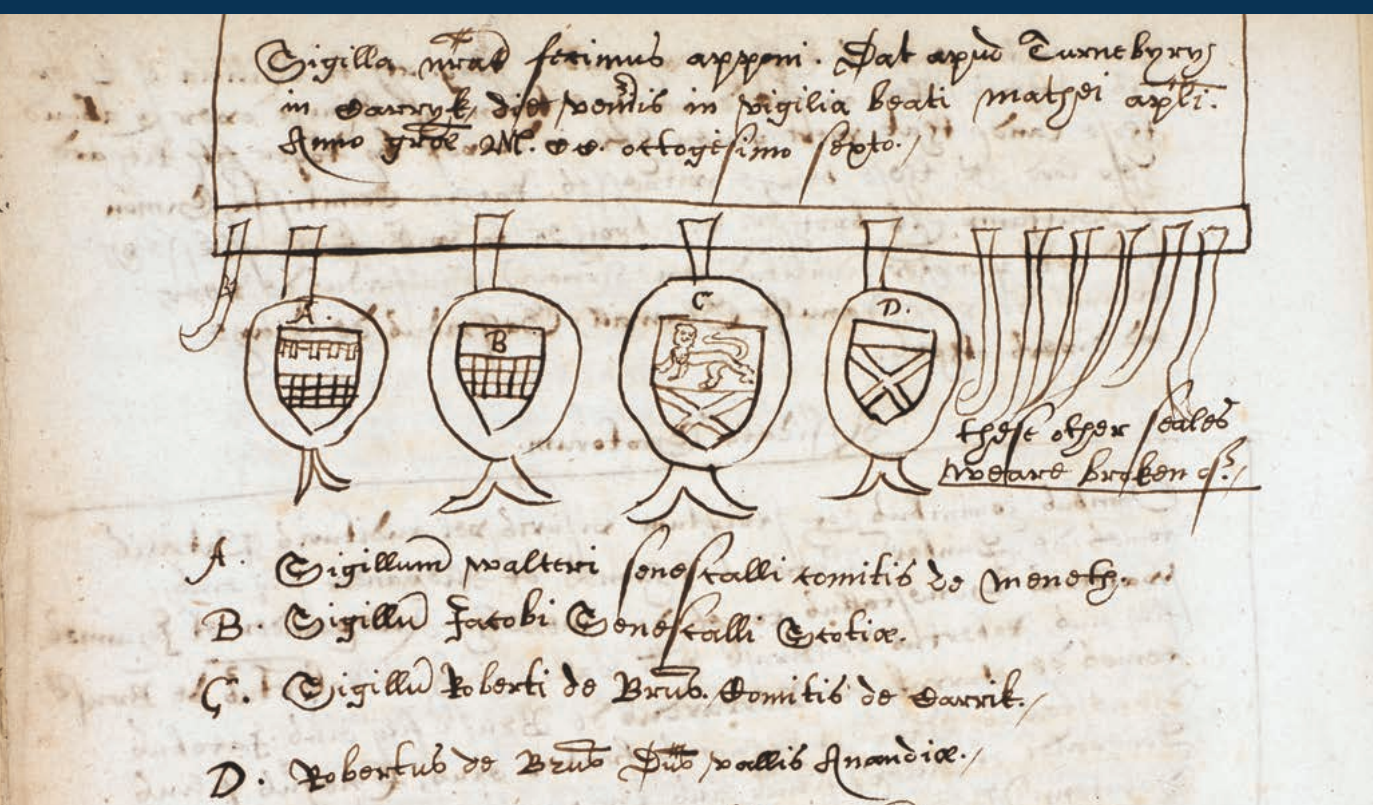 Sigilla nrād fecimus apponi. Dat apud Turnebyry
in Carryk, die veneris in vigilia beati mathei apli.
Anno gr̄oe M. cc. octogesimo sexto./
A.
B
C
D.
these other seales
weare broken of./
A. Sigillum walteri senescalli comitis de meneth.
B. Sigillū Jacobi Senescalli Scotiæ.
C. Sigillū Roberti de Brus. Comitis de Carrik./
D. Robertus de Brus Dūs vallis Anandiæ./